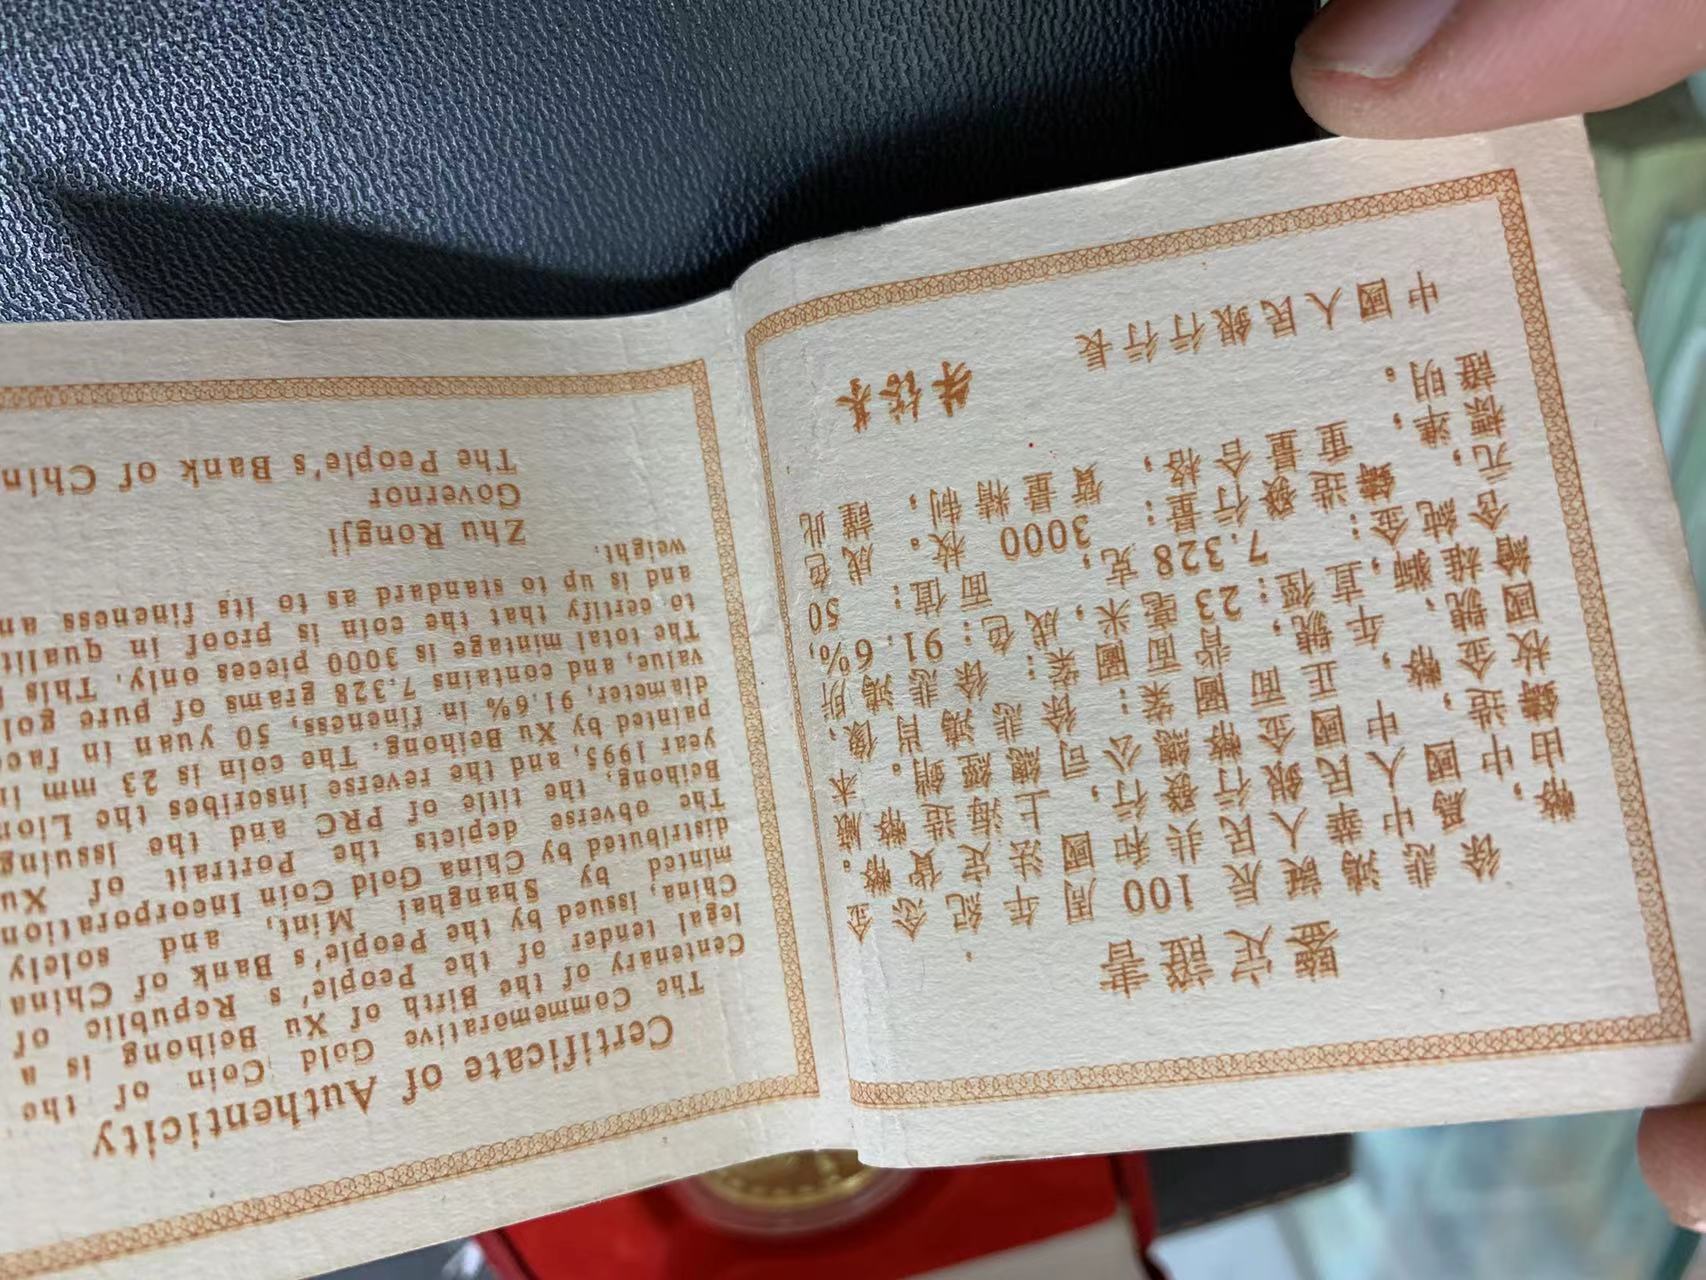 鑒定證書
徐悲鴻誕辰100周年紀念金
幣，爲中華人民共和國法定貨幣。
由中國人民銀行發行，上海造幣廠
鑄造，中國金幣總公司總經銷。本
枚金幣，正面圖案：徐悲鴻肖像、
國號、年號，背面圖案：徐悲鴻所
繪雄獅，直徑：23毫米，成色：91.6%，
含純金：7.328克，面值：50
元，鑄造發行量：3000枚。成色
標準，重量合格，質量精制，謹此
證明。
中國人民銀行行長
朱鎔基
Certificate of Authenticity
The Commemorative Gold Coin of the
Centenary of the Birth of Xu Beihong is a
legal tender of the People's Republic of
China, issued by the People's Bank of China
minted by Shanghai Mint, and solely
distributed by China Gold Coin Incorporation
The obverse depicts the Portrait of Xu
Beihong, the title of PRC and the issuing
year 1995, and the reverse inscribes the Lion
painted by Xu Beihong. The coin is 23 mm in
diameter, 91.6% in fineness, 50 yuan in face
value, and contains 7.328 grams of pure gol
The total mintage is 3000 pieces only. This
to certify that the coin is proof in qualit
and is up to standard as to its fineness an
weight.
Zhu Rongji
Governor
The People's Bank of Chin